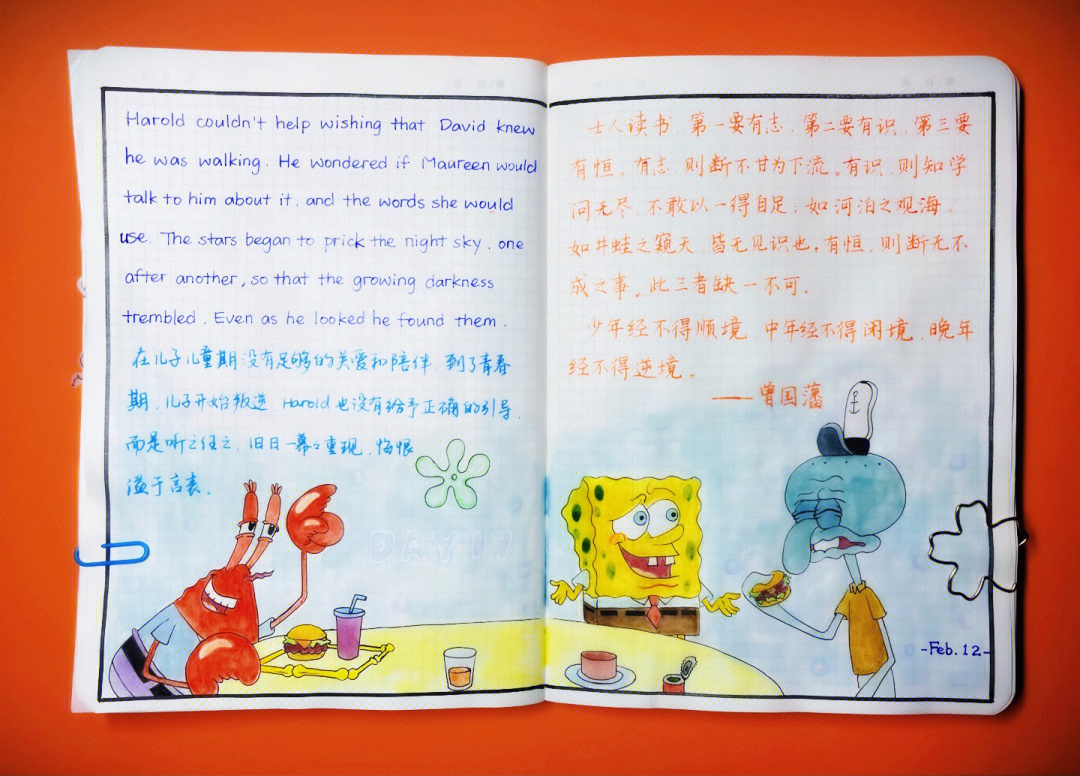 Harold couldn't help wishing that David knew
he was walking. He wondered if Maureen would
talk to him about it, and the words she would
use. The stars began to prick the night sky, one
after another, so that the growing darkness
trembled. Even as he looked he found them.
在儿子儿童期没有足够的关爱和陪伴,到了青春
期,儿子开始叛逆,Harold也没有给予正确的引导,
而是听之任之,旧日一幕々重现,悔恨
溢于言表.
DAY17
士人读书,第一要有志,第二要有识,第三要
有恒。有志,则断不甘为下流。有识,则知学
问无尽,不敢以一得自足;如河泊之观海,
如井蛙之窥天,皆无见识也。有恒,则断无不
成之事。此三者缺一不可.
少年经不得顺境,中年经不得闲境,晚年
经不得逆境。
——曾国藩
-Feb.12-